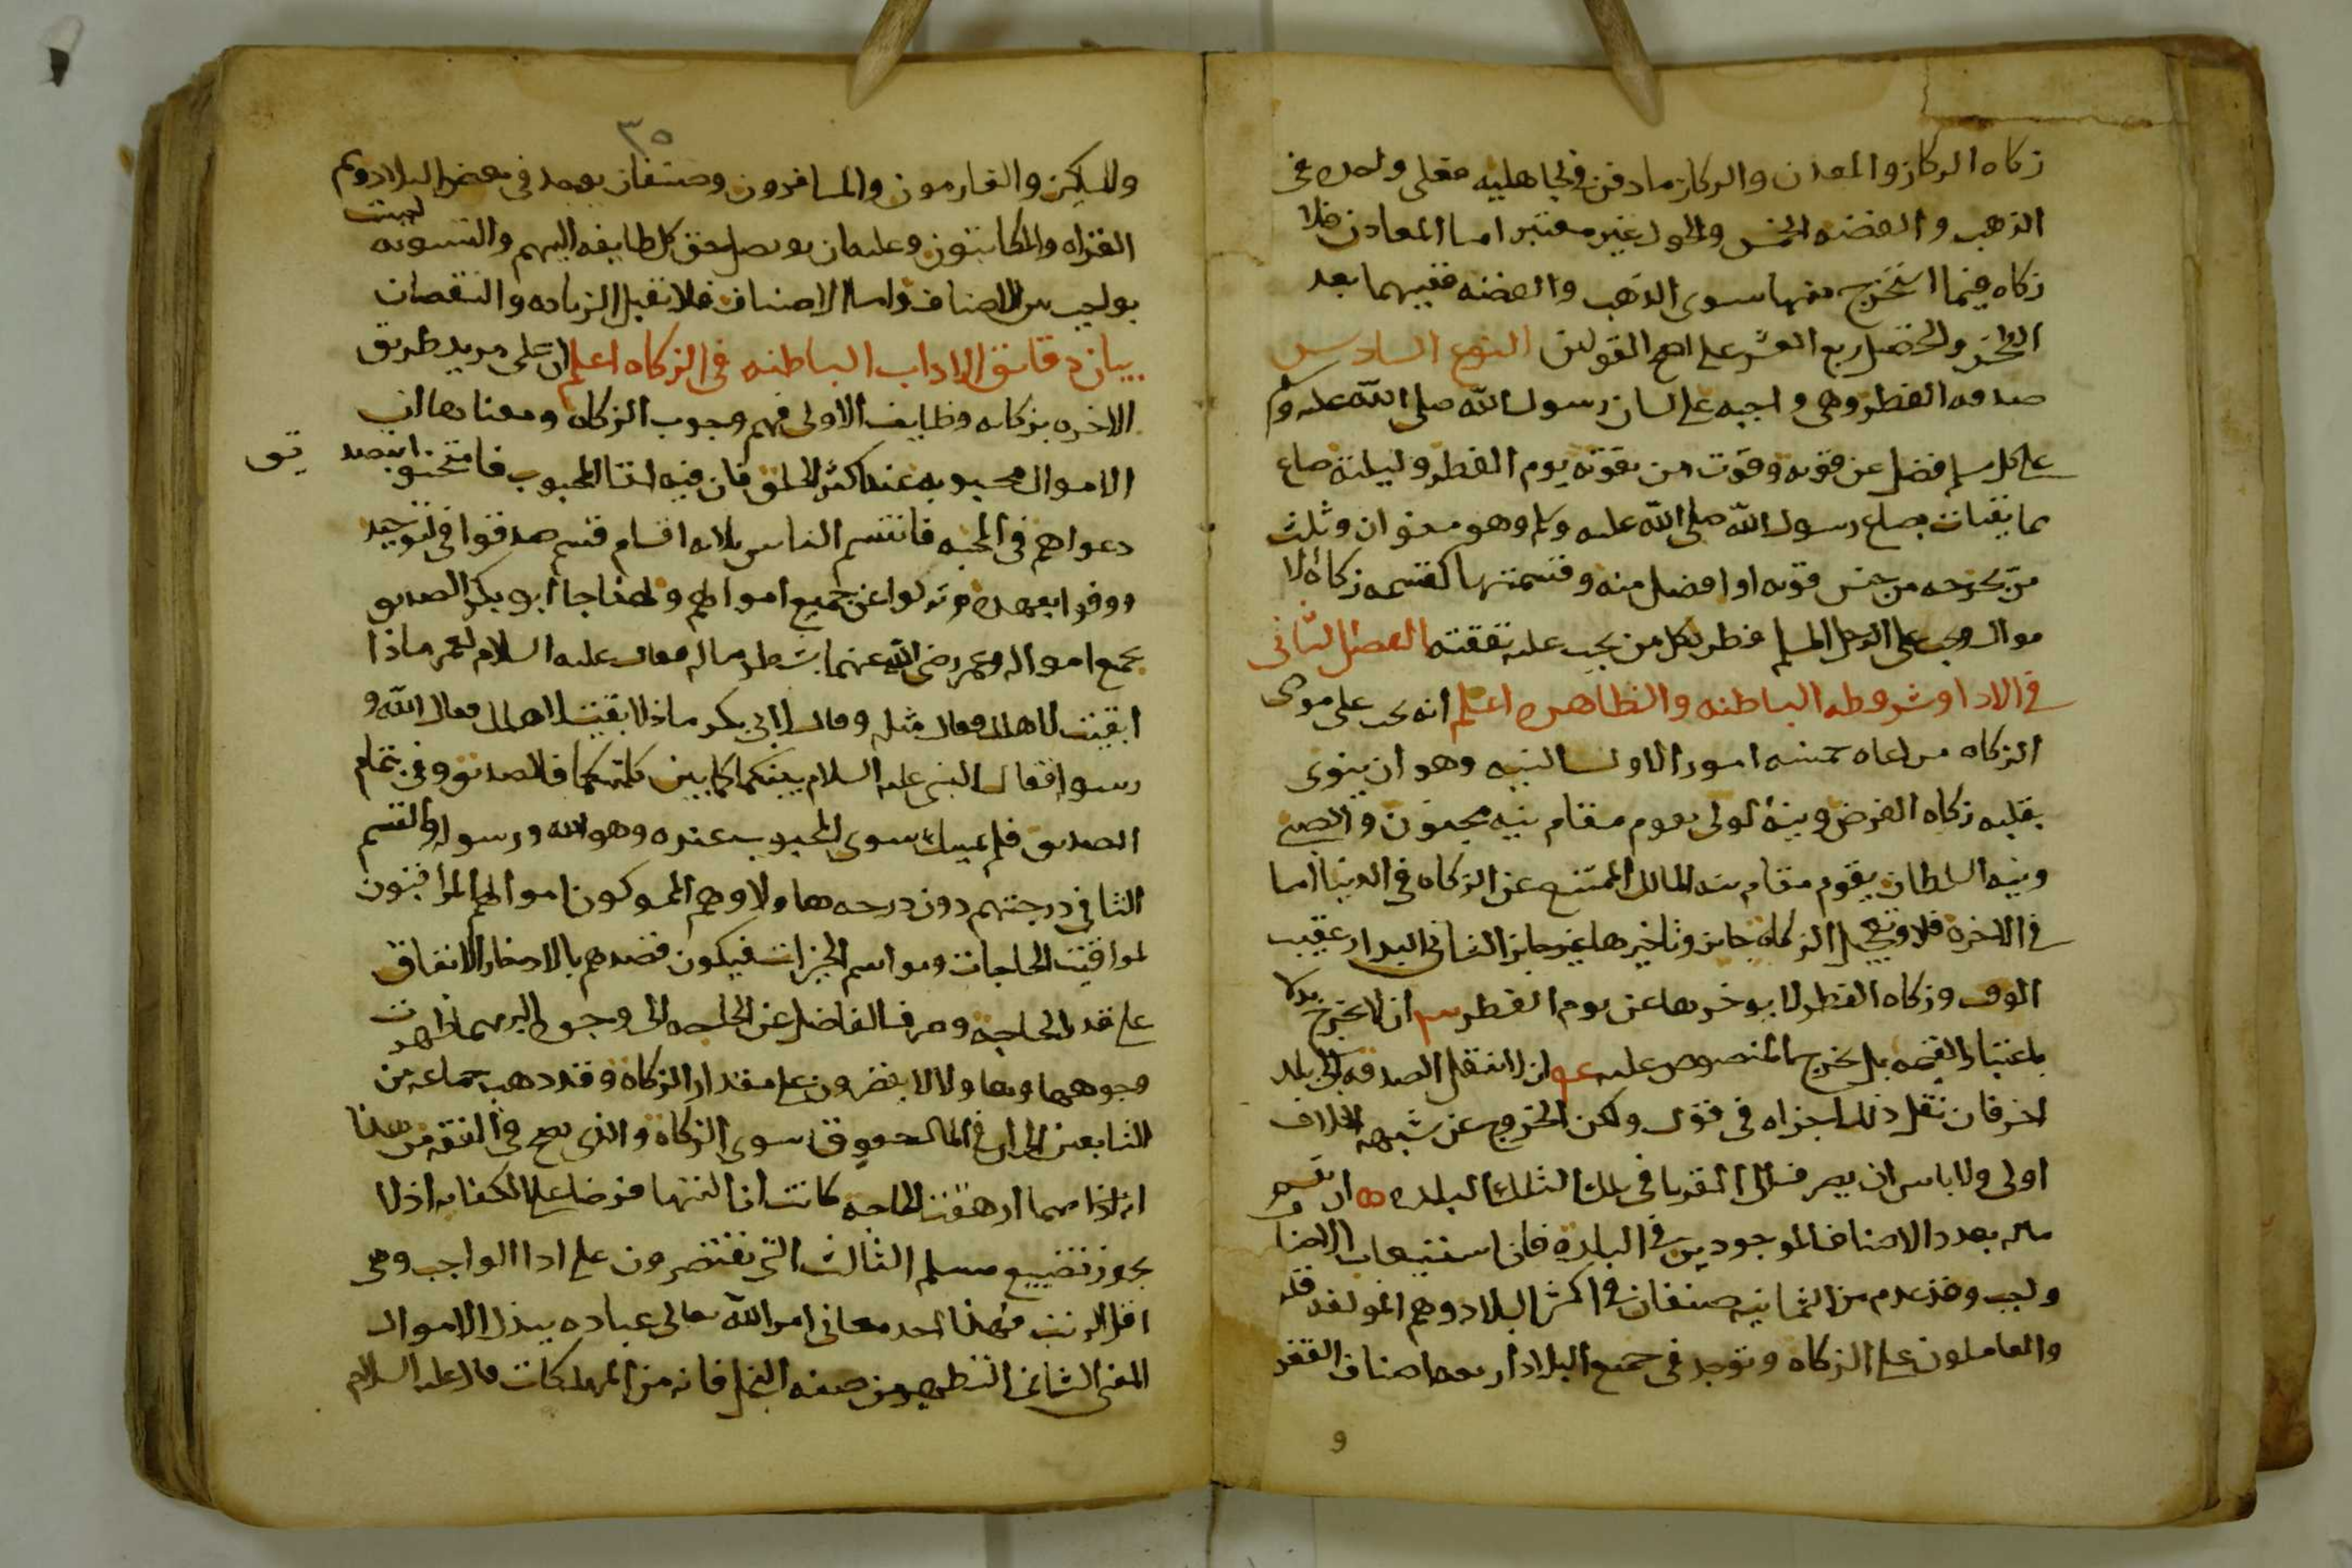 زكاه الركاز والمعدن والركاز ما دفن في الجاهليه فعلى واجده في
الذهب والفضه الخمس والحول غير معتبر اما المعادن فلا
زكاه فيما استخرج منها سوى الذهب والفضه ففيهما بعد
الطحن والتخليص ربع العشر على اصح القولين النوع السادس
صدقه الفطر وهي واجبه على لسان رسول الله صلى الله عليه وسلم
على كل مسلم فضل عن قوته وقوت من يقوته يوم الفطر وليلته صاع
مما يقتات بصاع رسول الله صلى الله عليه وسلم وهو منوان وثلث
من يخرجه من جنس قوته او افضل منه وقسمتها كقسمه زكاه الا
موال ويجب على الرجل المسلم فطر كل من يجب عليه نفقته الفصل الثاني
في الادا وشروطه الباطنه والظاهره اعلم انه يجب على مودى
الزكاه مراعاه خمسه امور الاول النيه وهو ان ينوى
بقلبه زكاه الفرض ونيه الولى يقوم مقام نيه مجنون والصبى
ونيه السلطان يقوم مقام نيه المالك الممتنع عن الزكاه في الدنيا اما
في الاخره فلا وتعجيل الزكاه جايز وتاخيرها غير جايز الثاني البدار عقيب
الوقت وزكاه الفطر لا يوخرها عن يوم الفطر ان لا يخرج بدلا
باعتبار القيمه بل يخرج المنصوص عليه ان لا ينقل الصدقه الى بلد
اخر فان نقل ذلك اجزاه في قول ولكن الخروج عن شبهه الخلاف
اولى ولا باس ان يصرف الى الغربا في تلك البلده ان يقسم
ماله بعدد الاصناف الموجودين في البلده فان استيعاب الاصنا
واجب وقد عدم من الثمانيه صنفان في اكثر البلاد وهم المولفه قلو
والعاملون على الزكاه ويوجد في جميع البلاد اربعه اصناف الفقر
و
٣٥
والمساكين والغارمون والمسافرون وصنفان يوجد في بعض البلاد وهم
الغزاه والمكاتبون وعليه ان يوصل حق كل طايفه اليهم والتسويه ليست
بواجب بين الاصناف واما الاصناف فلا تقبل الزياده والنقصان
بيان دقائق الاداب الباطنه في الزكاه اعلم ان على مريد طريق
الاخره بزكاته وظايف الاولى فهم وجوب الزكاه ومعناها ان
الاموال محبوبه عند اكثر الخلق فان فيه لقا المحبوب فامتحنوا بتصديق
دعواهم في المحبه فانقسم الناس ثلاثه اقسام قسم صدقوا في التوحيد
ووفوا بعهده ونزلوا عن جميع اموالهم ولهذا جا ابو بكر الصديق
بجميع امواله وعمر رضي الله عنهما بشطر ماله فقال عليه السلام لعمر ماذا
ابقيت لاهلك فقال مثله وقال لابي بكر ماذا ابقيت لاهلك فقال الله و
رسوله فقال النبى عليه السلام بينكما كما بين كلمتيكما فالصديق وفى بتمام
الصدق فلم يمسك سوى المحبوب عنده وهو الله ورسوله والقسم
الثاني درجتهم دون درجه هاولا وهم الممسكون اموالهم المراقبون
لمواقيت الحاجات ومواسم الخيرات فيكون قصدهم بالادخار الانفاق
على قدر الحاجه وصرف الفاضل عن الحاجه الى وجوه البر مهما ظهرت
وجوهها وهاولا لا يقتصرون على مقدار الزكاه وقد ذهب جماعه من
التابعين الى ان في المال حقوق سوى الزكاه والذى يصح في الفقه من هذا
انه اذا مهما ارهقت الحاجه كانت ازالتها فرضا على الكفايه اذ لا
يجوز تضييع مسلم الثالث التي يقتصرون على ادا الواجب وهي
اقل الرتب فهذا احد معاني امر الله تعالى عباده ببذل الاموال
المعنى الثاني التطهير من صفه البخل فانه من المهلكات قال عليه السلام